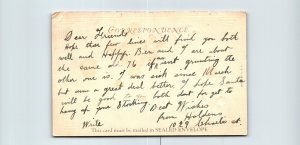 CORRESPONDENCE
Dear Friends
Hope these few lines will find you both
well and Happy. Ben and I are about
the same at 76 if just grunting the
other one is. I was sick some March
but am a great deal better. I hope Santa
will be good to you both dont for get to
hang up your Stocking Best Wishes
from Holdens
Write 1029 St.
This card must be mailed in SEALED ENVELOPE